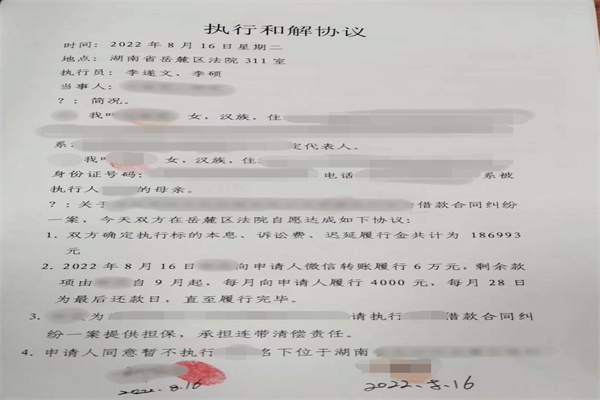 执行和解协议
时间：2022 年 8 月 16 日星期二
地点：湖南省岳麓区法院 311 室
执行员：李遂文、李硕
当事人：
？：简况。
我叫 女，汉族，住
系 定代表人。
我叫 女，汉族，住
身份证号码： 电话 系被
执行人 的母亲。
？：关于 的借款合同纠纷
一案，今天双方在岳麓区法院自愿达成如下协议：
1．双方确定执行标的本息、诉讼费、迟延履行金共计为 186993
元
2．2022 年 8 月 16 日 向申请人微信转账履行 6 万元，剩余款
项由 自 9 月起，每月向申请人履行 4000 元，每月 28 日
为最后还款日，直至履行完毕。
3． 为 请执行 借款合同纠
纷一案提供担保，承担连带清偿责任。
4．申请人同意暂不执行 名下位于湖南
2022.8.16 2022.8.16